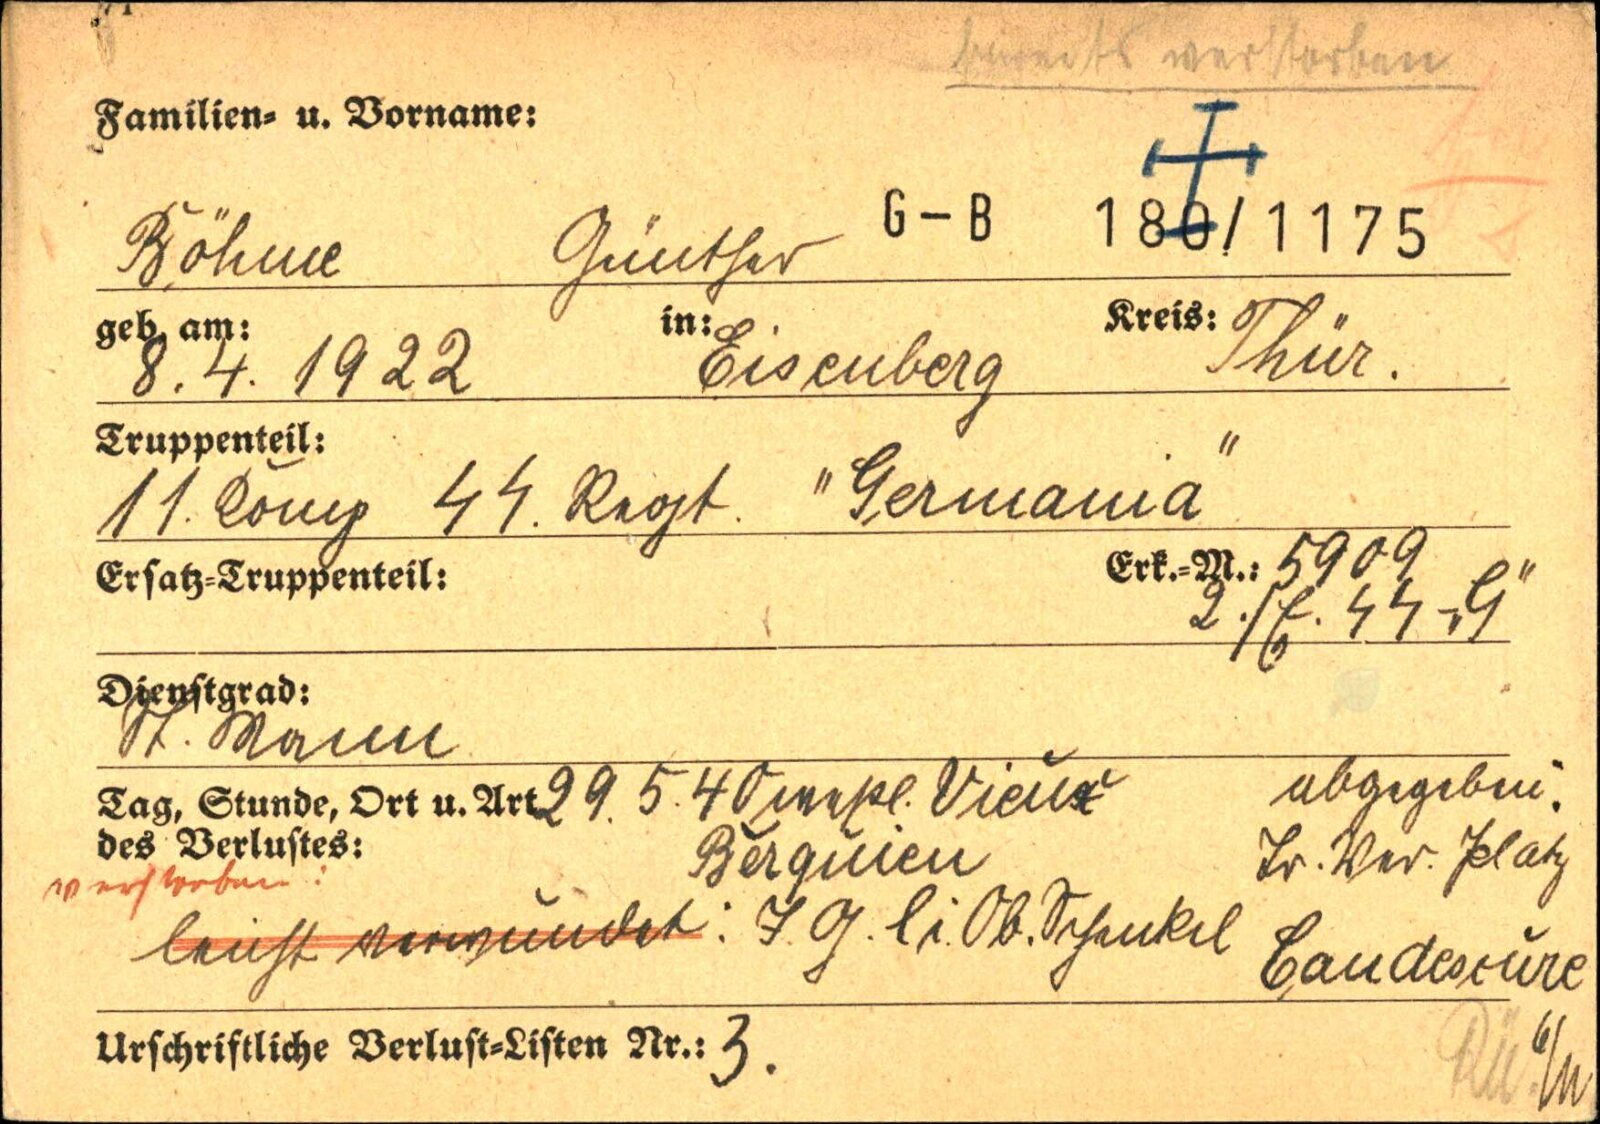 bereits verstorben
Familien- u. Vorname:
Böhme Günther G-B 180/1175
geb. am: in: Kreis:
8.4.1922 Eisenberg Thür.
Truppenteil:
11. Komp 44. Regt. "Germania"
Ersatz-Truppenteil: Erk.-M.: 5909
2./E. 44 - "G"
Dienstgrad:
St. Mann
Tag, Stunde, Ort u. Art 29.5.40 Vieux abgegeben:
des Verlustes: Berquien Tr. Ver. Platz
verstorben:
leicht verwundet: I.G. li. Ob. Schenkel
Urschriftliche Verlust-Listen Nr.: 3.